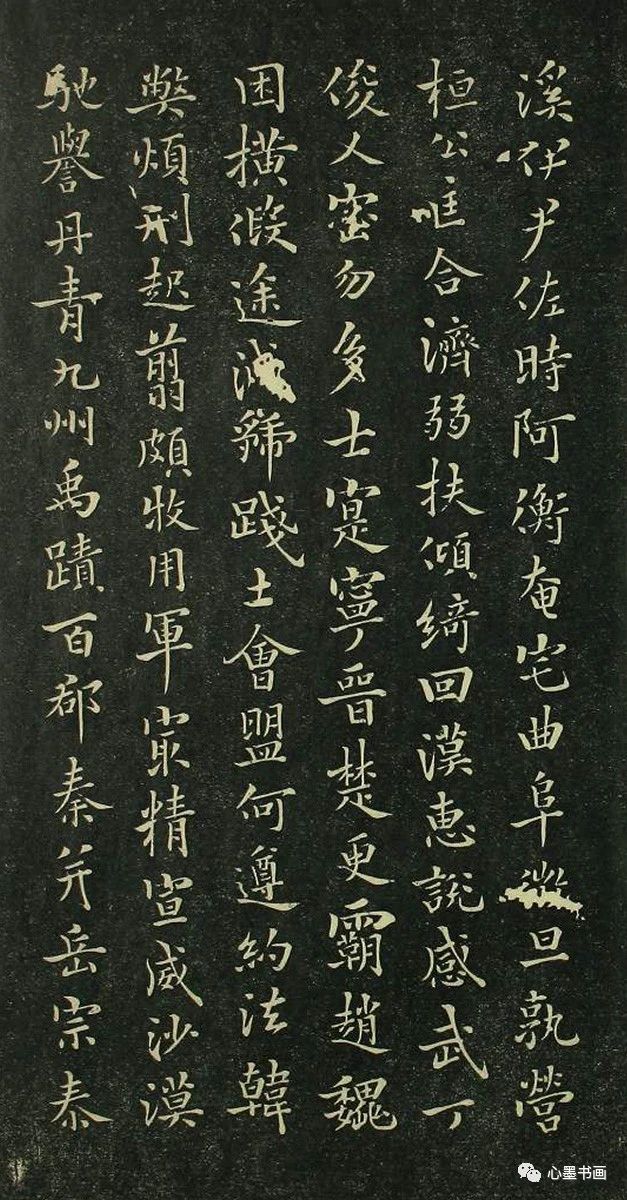 溪伊尹佐時阿衡奄宅曲阜微旦孰營
桓公匡合濟弱扶傾綺回漢惠説感武丁
俊乂密勿多士寔寧晉楚更霸趙魏
困橫假途滅虢踐土會盟何遵約法韓
弊煩刑起翦頗牧用軍冣精宣威沙漠
馳譽丹青九州禹蹟百郡秦并岳宗泰
心墨书画